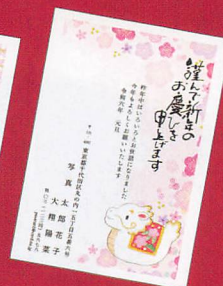 謹んで新年の
お慶びを
申し上げます
昨年中はいろいろとお世話になりました
今年もよろしくお願いいたします
令和六年 元旦
東京都千代田区丸の内一五
写真 太郎
花子
大翔
陽菜